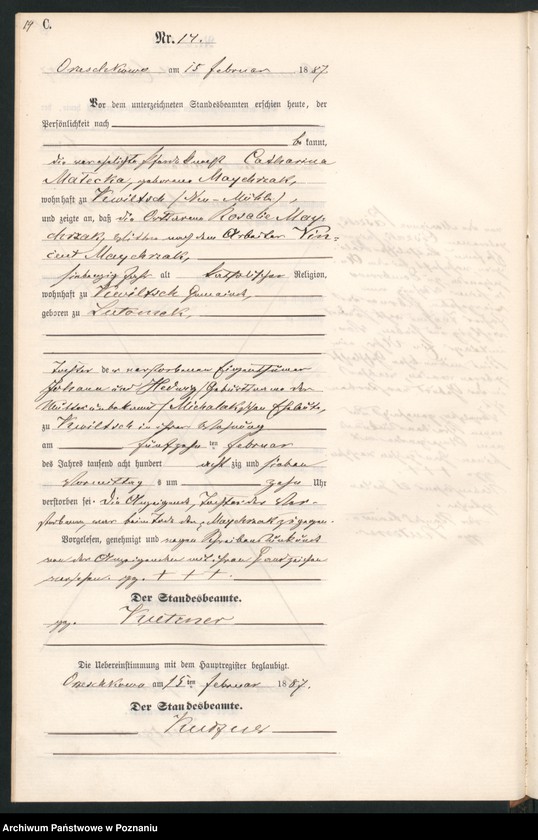 19 C.
Nr. 14.
Orzeschkowo am 15 februar 1887.
Vor dem unterzeichneten Standesbeamten erschien heute, der
Persönlichkeit nach
be kannt,
die verehelichte Pferdeknecht Catharina
Małecka, geborene Maychrzak,
wohnhaft zu Kwiltsch (Neu-Mühle),
und zeigte an, daß die Ortsarme Rosalie May-
chrzak, Wittwe nach dem Arbeiter Vin-
cent Maychrzak,
siebenzig Jahr alt katholischer Religion,
wohnhaft zu Kwiltsch Gemeinde,
geboren zu Lutomek,
Tochter der verstorbenen Eigenthümer
Johann und Hedwig (Geburtsname der
Mutter unbekannt) Michalak'schen Eheleute,
zu Kwiltsch in ihrer Wohnung
am fünfzehnten februar
des Jahres tausend acht hundert acht zig und sieben
Vormittag s um zehn Uhr
verstorben sei. Die Anzeigende, Tochter der Ver-
storbenen, war beim Tode der Maychrzak zugegen.
Vorgelesen, genehmigt und wegen Schreibensunkunde
von der Anzeigenden mit ihrem Handzeichen
versehen. gg. + + +.
Der Standesbeamte.
gg. Kutzner
Die Uebereinstimmung mit dem Hauptregister beglaubigt.
Orzeschkowo am 15ten februar 1887.
Der Standesbeamte.
Kutzner
Archiwum Państwowe w Poznaniu